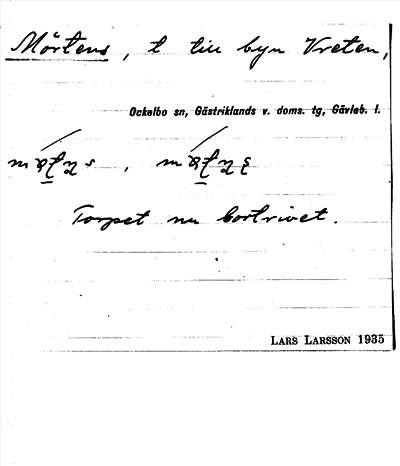 Mörtens, t till byn Vreten,
Ockelbo sn, Gästriklands v. doms. tg, Gävleb. l.
Torpet nu bortrivet.
LARS LARSSON 1935